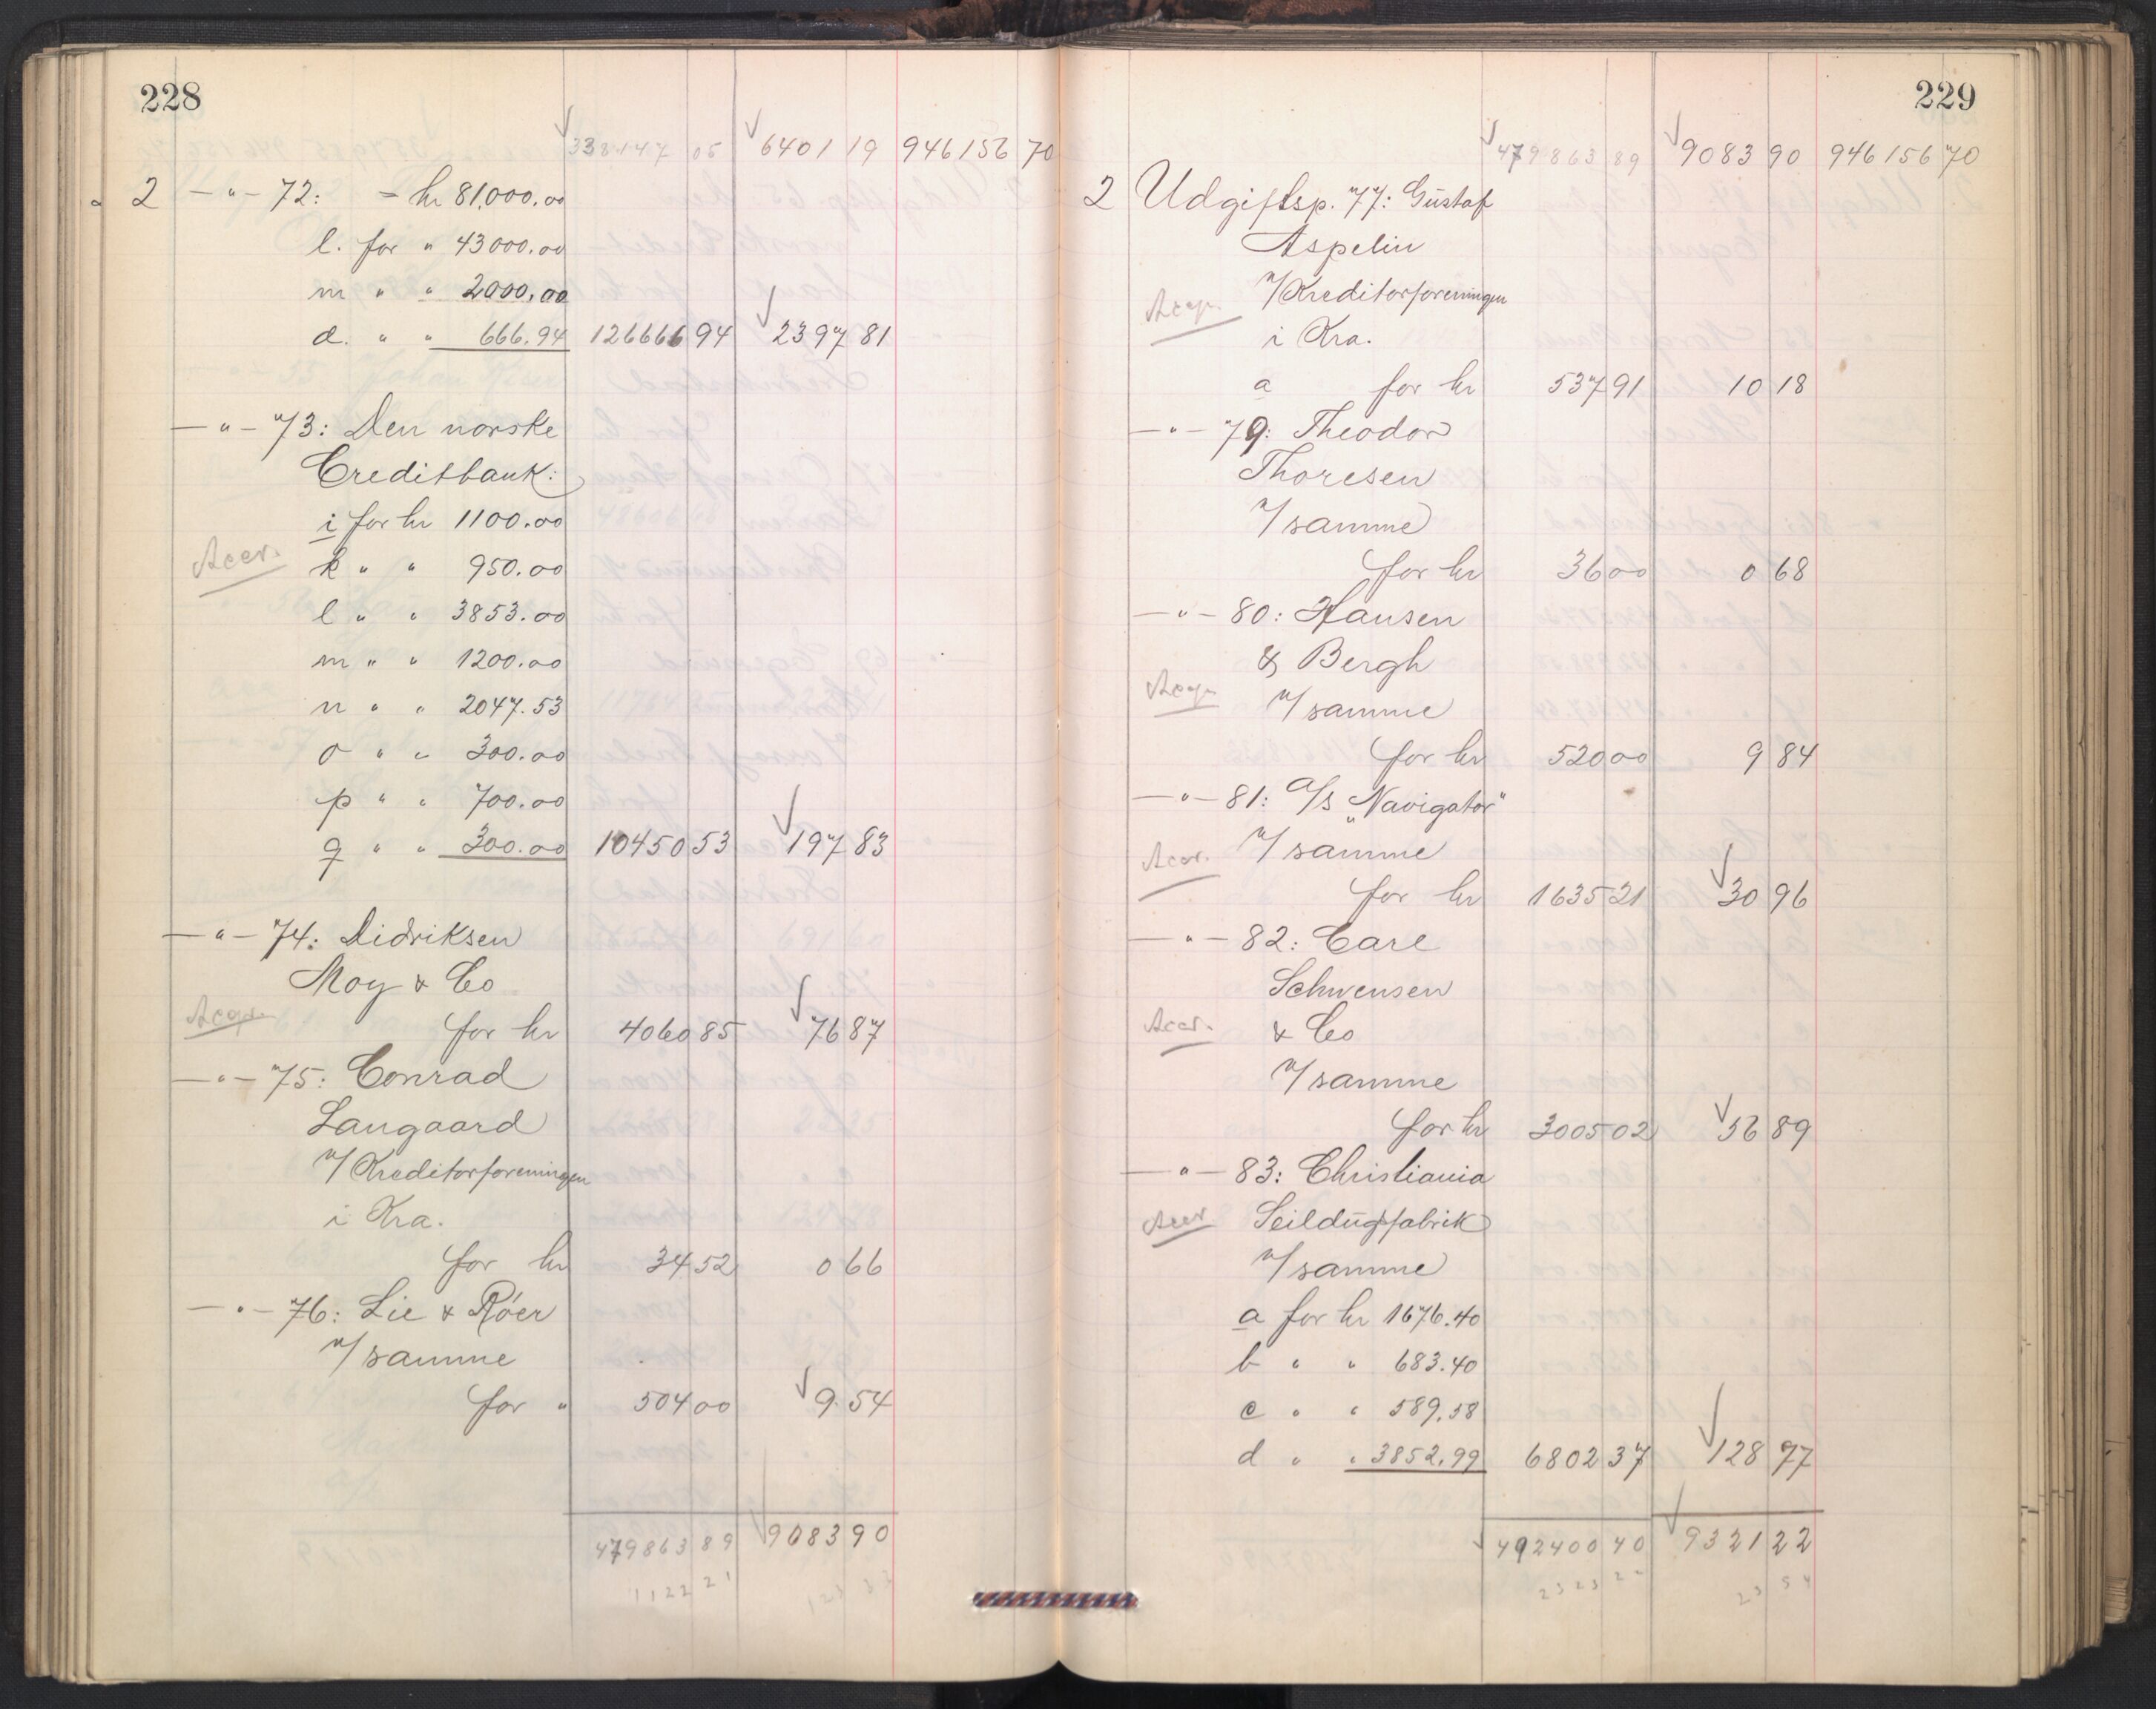 228
338147 05 6401 19 946156 70
2 — " — 72: = kr 81,000.00
l. for " 43000.00
m " " 2000,00
d. " " 666.94 126666 94 2397 81
— " — 73: Den norske
Creditbank:
i for kr 1100.00
Accr. k " " 950.00
l " " 3853.00
m " " 1200.00
n " " 2047.53
o " " 300.00
p " " 700.00
q " " 300.00 10450 53 197 83
— " — 74: Didriksen
Moy & Co
for kr 4060 85 76 87
— " — 75: Conrad
Langaard
v/ Kreditorforeningen
i Kra.
for kr 34 52 0 66
— " — 76: Lie & Röer
v/ samme
for " 504 00 9 54
479863 89 9083 90
1122 21 123 33
229
479863 89 9083 90 946156 70
2 Udgiftsp. 77: Gustaf
Aspelin
v/ Kreditorforeningen
i Kra.
a for kr 537 91 10 18
— " — 79: Theodor
Thoresen
v/ samme
for kr 36 00 0 68
— " — 80: Hansen
& Bergh
v/ samme
for kr 520 00 9 84
— " — 81: A/S „Navigator"
Accr. v/ samme
for kr 1635 21 30 96
— " — 82: Carl
Schwensen
Accr. & Co
v/ samme
for kr 3005 02 56 89
— " — 83: Christiania
Accr Seildugsfabrik
v/ samme
a for kr 1676.40
b " " 683.40
c " " 589.58
d " " 3852.99 6802 37 128 77
492400 40 9321 22
2323 22 23 54